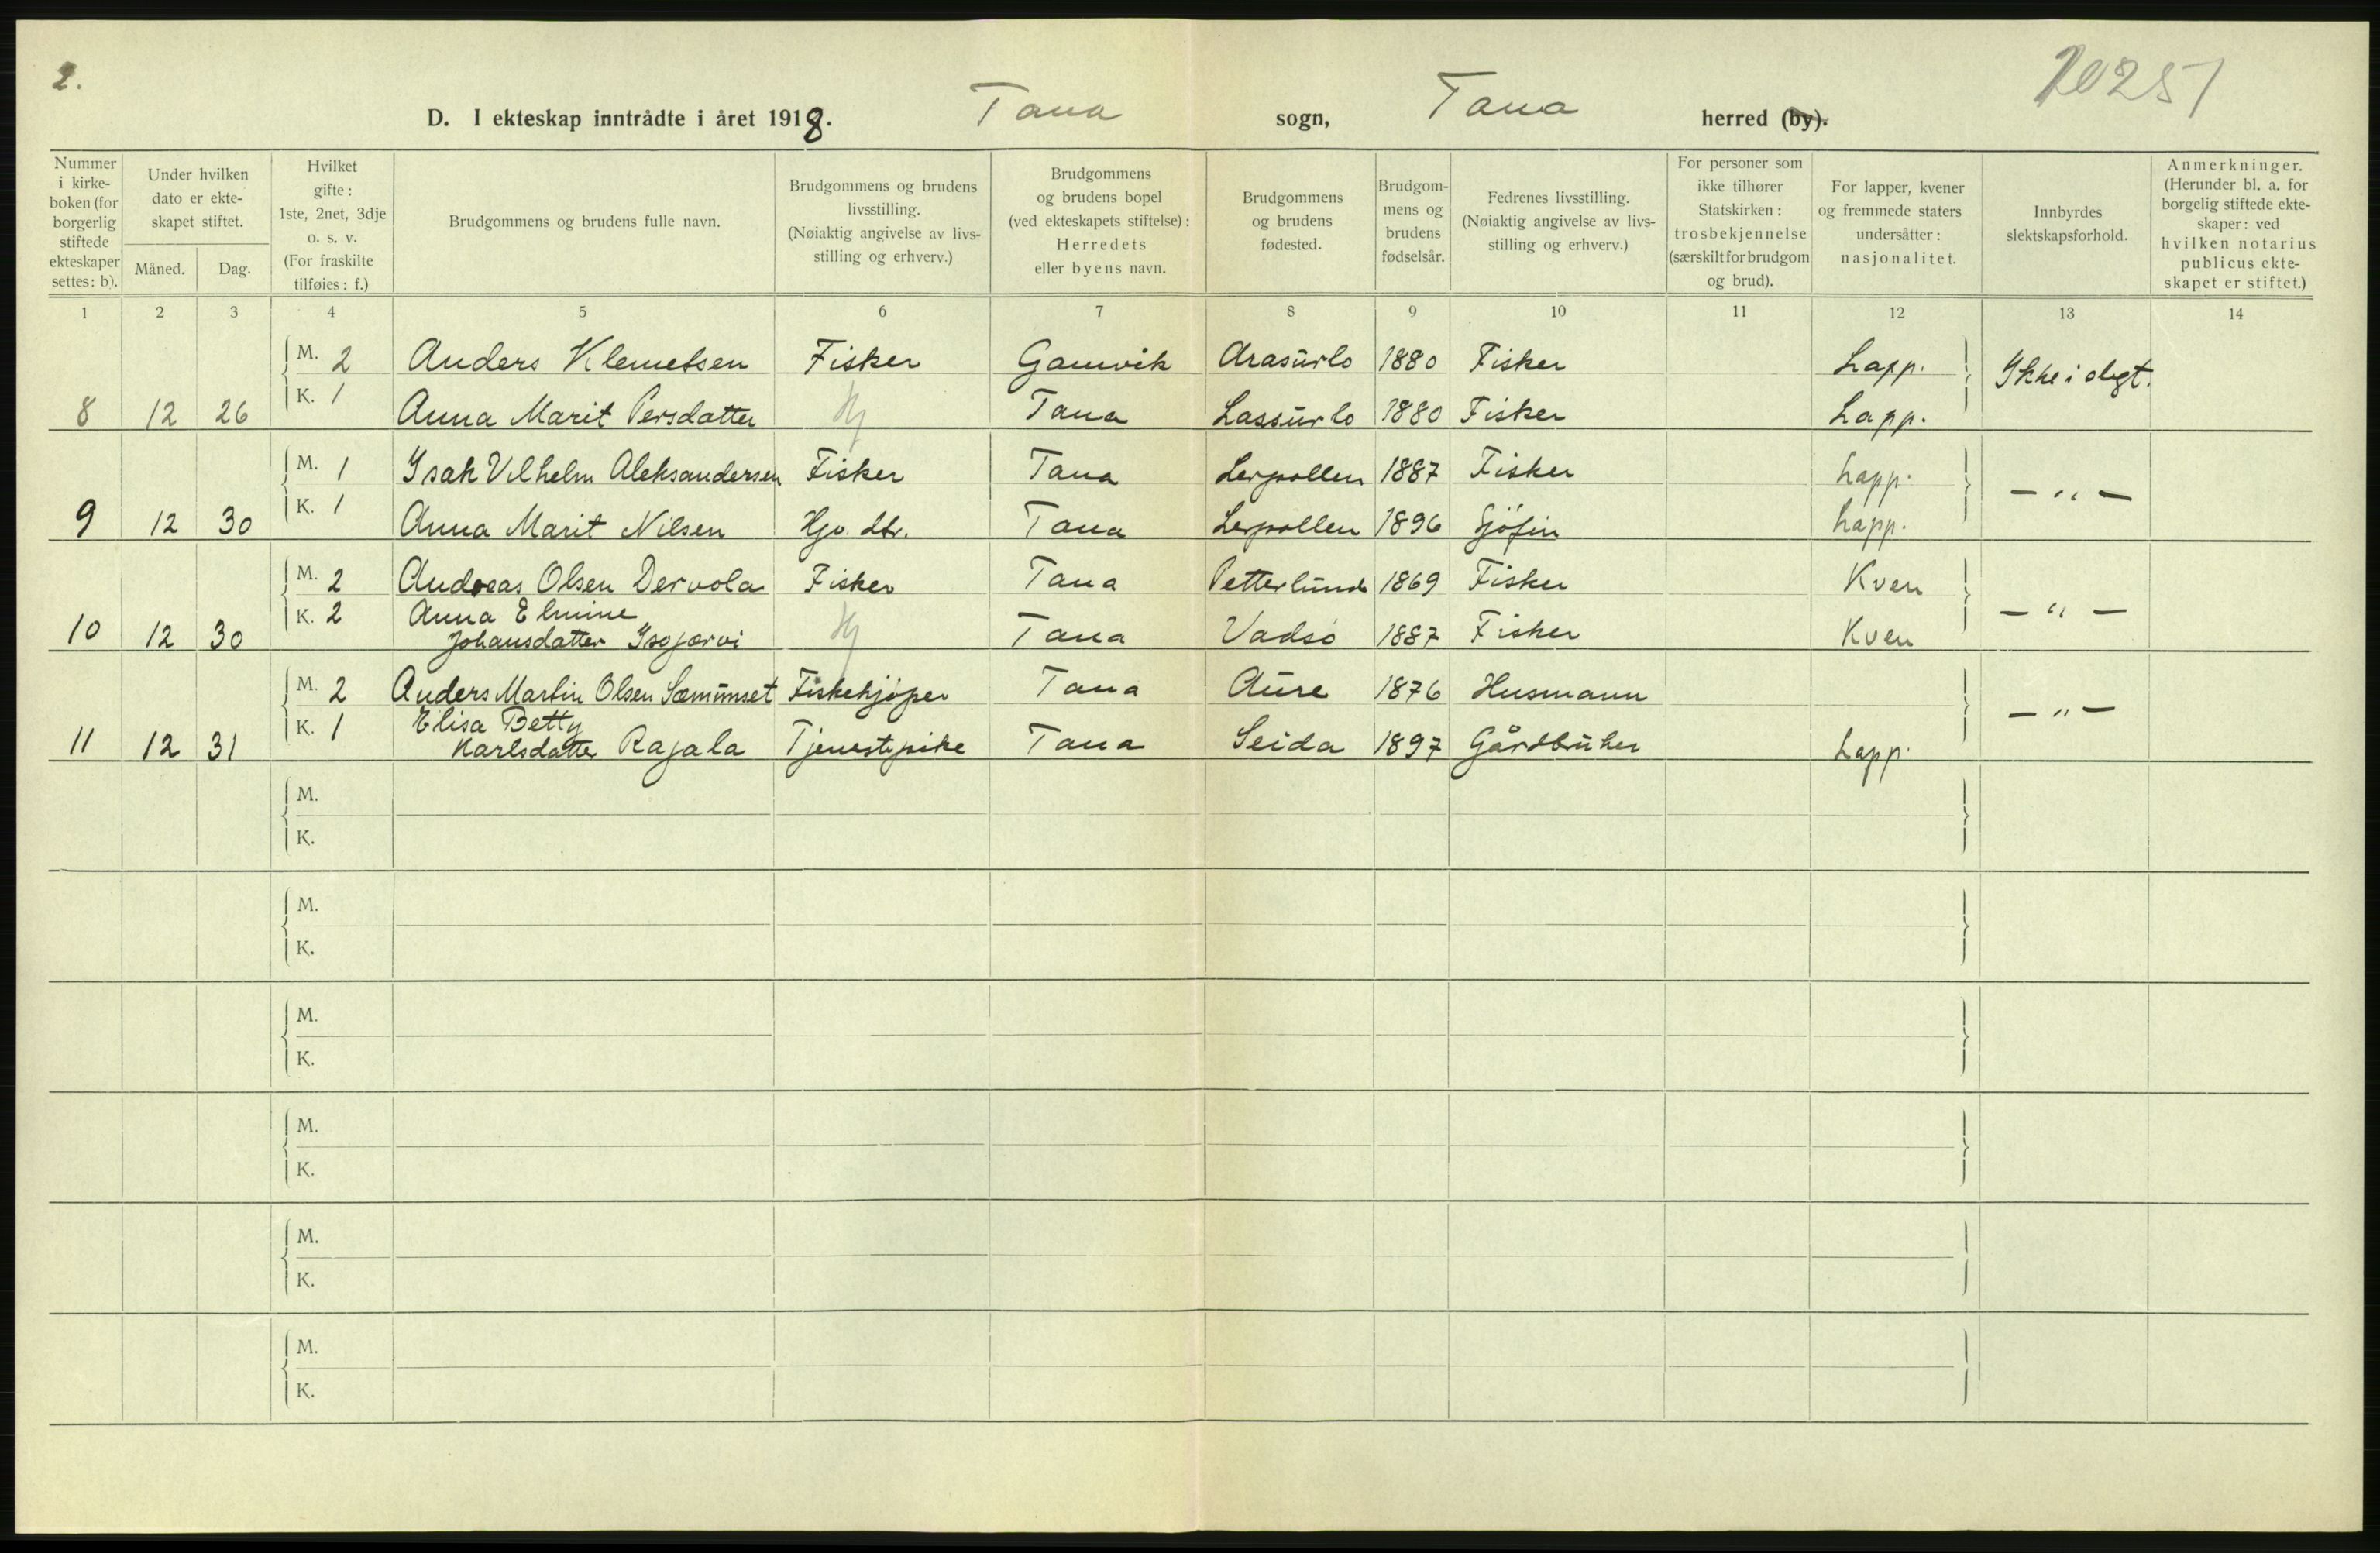 2.
20251
D. I ekteskap inntrådte i året 1918. Tana sogn, Tana herred (by).
Nummer
i kirke-
boken (for
borgerlig
stiftede
ekteskaper
settes: b).
Under hvilken
dato er ekte-
skapet stiftet.
Måned. Dag.
Hvilket
gifte:
1ste, 2net, 3dje
o. s. v.
(For fraskilte
tilføies: f.)
Brudgommens og brudens fulle navn.
Brudgommens og brudens
livsstilling.
(Nøiaktig angivelse av livs-
stilling og erhverv.)
Brudgommens
og brudens bopel
(ved ekteskapets stiftelse):
Herredets
eller byens navn.
Brudgommens
og brudens
fødested.
Brudgom-
mens og
brudens
fødselsår.
Fedrenes livsstilling.
(Nøiaktig angivelse av livs-
stilling og erhverv.)
For personer som
ikke tilhører
Statskirken:
trosbekjennelse
(særskilt for brudgom
og brud).
For lapper, kvener
og fremmede staters
undersåtter:
nasjonalitet.
Innbyrdes
slektskapsforhold.
Anmerkninger.
(Herunder bl. a. for
borgelig stiftede ekte-
skaper: ved
hvilken notarius
publicus ekte-
skapet er stiftet.)
1 2 3 4 5 6 7 8 9 10 11 12 13 14
M. 2 Anders Klemetsen Fisker Gamvik Arasürlo 1880 Fisker Lapp. Ikke i slegt.
8 12 26 K. 1 Anna Marit Persdatter Hj Tana Lassürlo 1880 Fisker Lapp.
M. 1 Isak Vilhelm Aleksandersen Fisker Tana Lerpollen 1887 Fisker Lapp. — " —
9 12 30 K. 1 Anna Marit Nilsen Hjv. dtr. Tana Lerpollen 1896 Sjöfin Lapp.
M. 2 Andreas Olsen Dervola Fisker Tana Petterlund 1869 Fisker Kven — " —
K. 2 Anna Elmine
10 12 30 Johansdatter Isojærvi Hj Tana Vadsö 1887 Fisker Kven
M. 2 Anders Martin Olsen Sæmúnset Fiskekjöper Tana Aüre 1876 Husmann — " —
K. 1 Elisa Betty
11 12 31 Karlsdatter Rajala Tjenestepike Tana Seida 1897 Gårdbrüker Lapp.
M.
K.
M.
K.
M.
K.
M.
K.
M.
K.
M.
K.